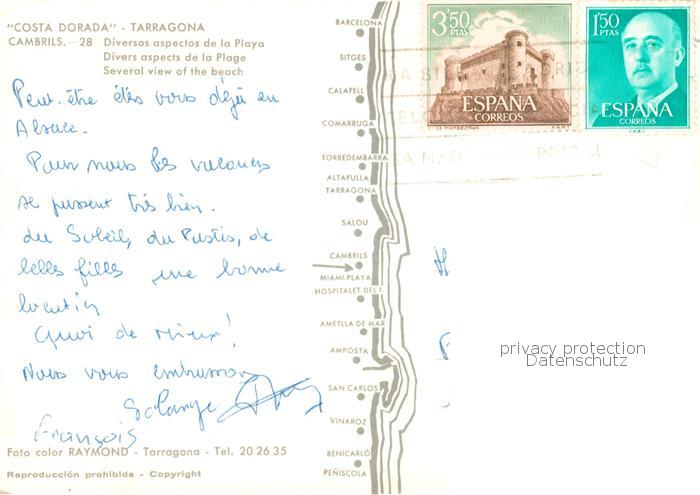 "COSTA DORADA" - TARRAGONA
CAMBRILS. - 28 Diversos aspectos de la Playa
Divers aspects de la Plage
Several view of the beach
Peut-être êtes vous déjà en
Alsace.
Pour nous les vacances
se passent très bien.
du Soleil, du Pastis, de
belles filles une bonne
location
Quoi de mieux!
Nous vous embrassons
Solange
François
Foto color RAYMOND - Tarragona - Tel. 20 26 35
Reproducción prohibida - Copyright
BARCELONA
SITGES
CALAFELL
COMARRUGA
TORREDEMBARRA
ALTAFULLA
TARRAGONA
SALOU
CAMBRILS
MIAMI-PLAYA
HOSPITALET DEL I.
AMETLLA DE MAR
AMPOSTA
SAN CARLOS
VINAROZ
BENICARLÓ
PEÑISCOLA
3'50
PTAS
ESPAÑA
CORREOS
1'50
PTAS
ESPAÑA
CORREOS
privacy protection
Datenschutz